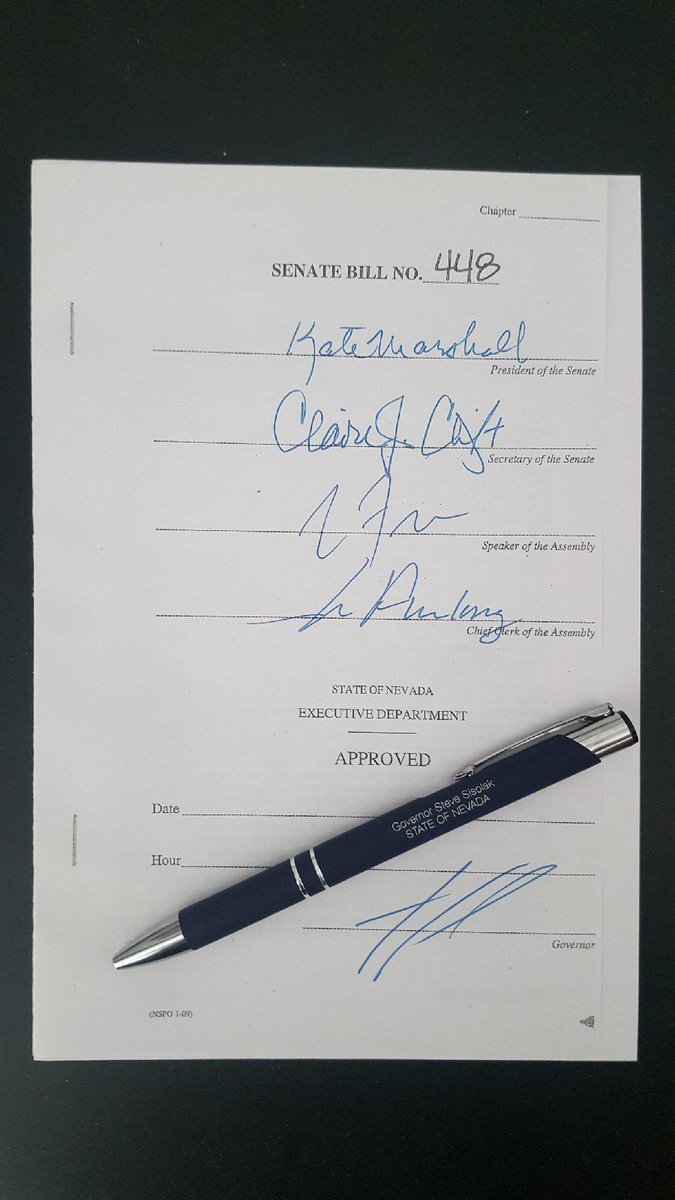 Chapter
SENATE BILL NO. 448
Kate Marshall
President of the Senate
Claire J. Clift
Secretary of the Senate
Speaker of the Assembly
Chief Clerk of the Assembly
STATE OF NEVADA
EXECUTIVE DEPARTMENT
APPROVED
Date
Governor Steve Sisolak
STATE OF NEVADA
Hour
Governor
(NSPO 1-09)